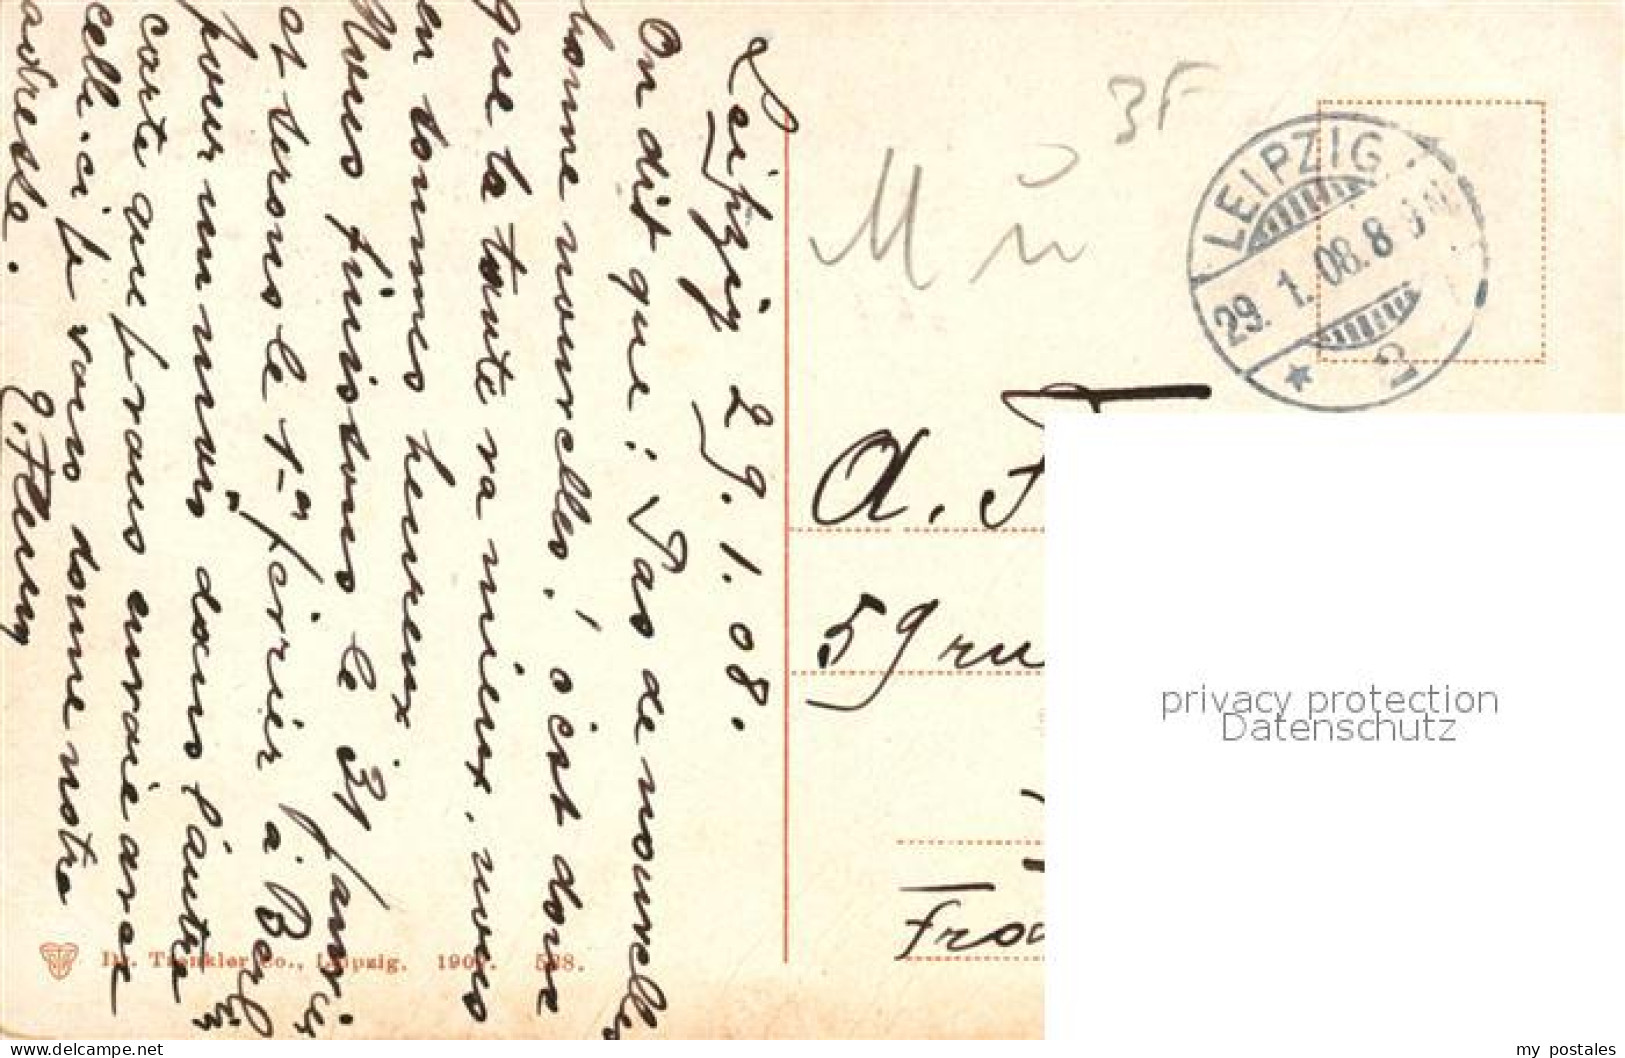 Leipzig 29.1.08.
On dit que: Pas de nouvelles
bonne nouvelles, c'est donc
que la toute va mieux, nous
en sommes heureux.
Nous finissons le 31 janvier
et serons le 1er février à Berlin
pour un mois dans l'autre
carte que je vous envoie avec
celle-ci je vous donne notre
adresse.
G. Fleury
Mü
3F
LEIPZIG
29.1.08.8-9N
* 2
A. F
59 ru
Fra
Dr. Trenkler Co., Leipzig. 190. 58.
privacy protection
Datenschutz
www.delcampe.net
my_postales